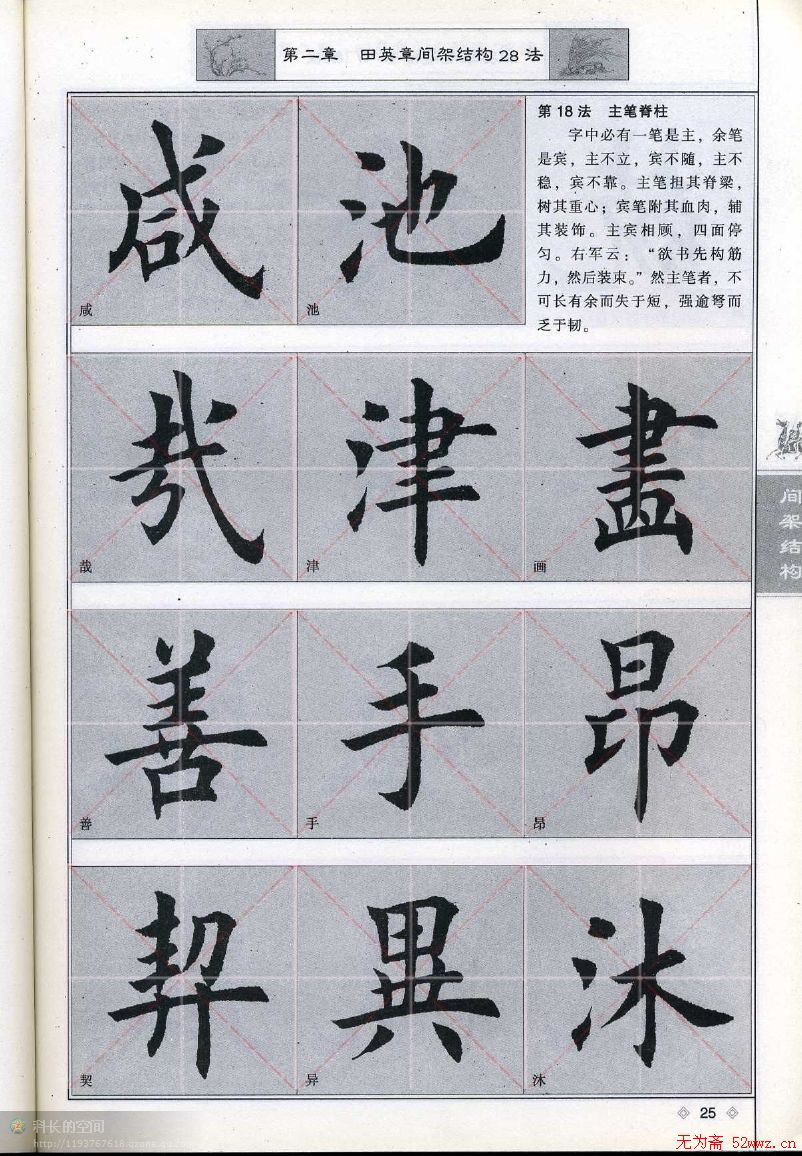 第二章 田英章间架结构28法
第18法 主笔脊柱
字中必有一笔是主，余笔
是宾，主不立，宾不随，主不
稳，宾不靠。主笔担其脊梁，
树其重心；宾笔附其血肉，辅
其装饰。主宾相顾，四面停
匀。右军云：“欲书先构筋
力，然后装束。”然主笔者，不
可长有余而失于短，强逾弩而
乏于韧。
咸 池
咸 池
哉 津 畫
哉 津 画
善 手 昂
善 手 昂
契 異 沐
契 异 沐
间架结构
25
科长的空间
http://1193767618.qzone.qq.com
无为斋 52wwz.cn